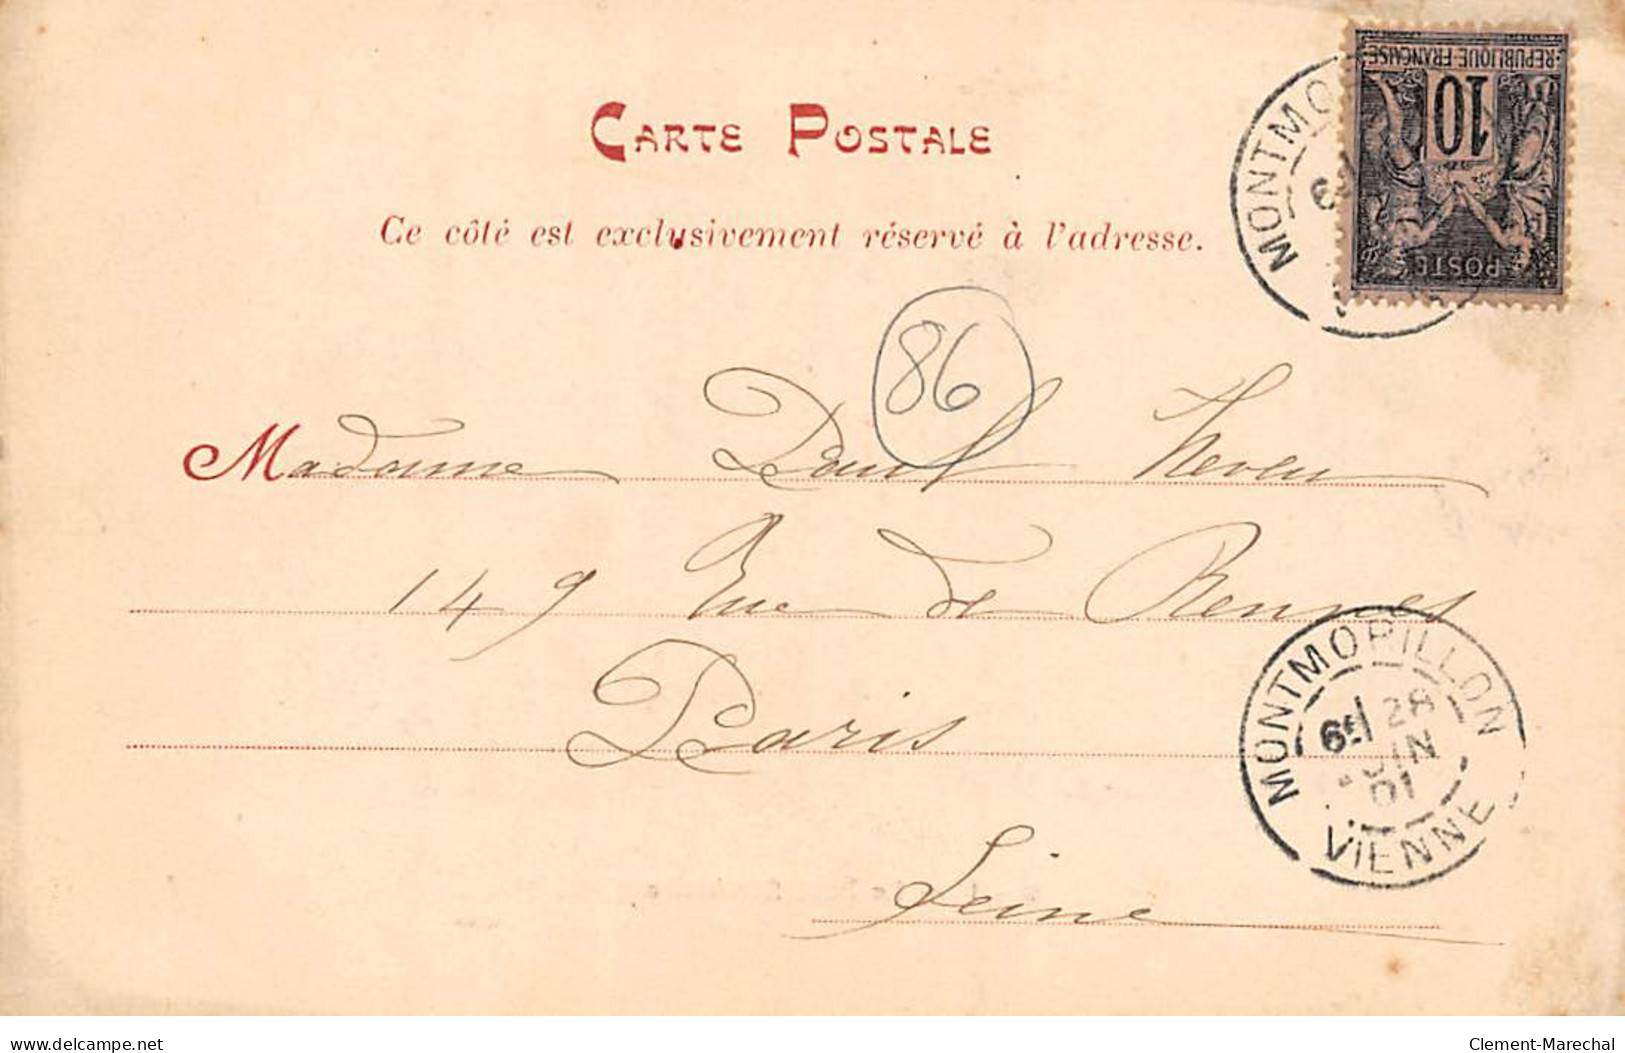 CARTE POSTALE
Ce côté est exclusivement réservé à l'adresse.
RÉPUBLIQUE FRANÇAISE
10
POSTE
MONTMO
86
Madame Paul Neveu
149 Rue de Rennes
Paris
Seine
MONTMORILLON
6E 28
JUIN
01
VIENNE
delcampe.net
Clement-Marechal